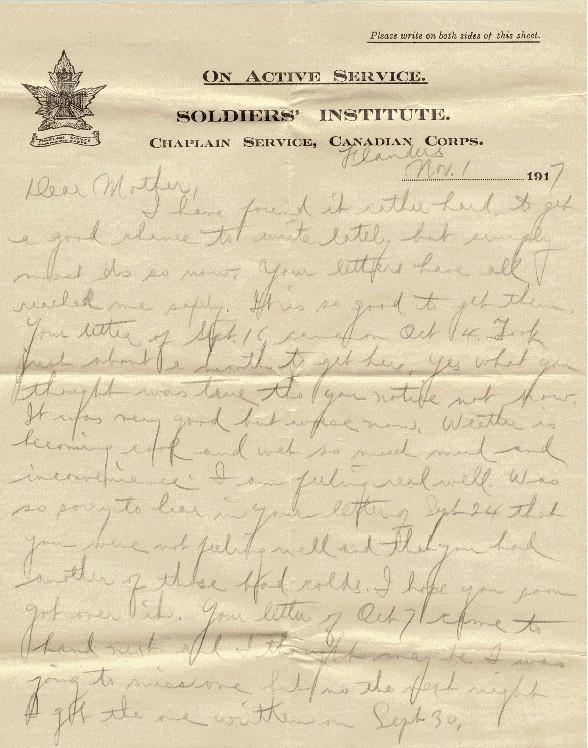 Please write on both sides of this sheet.
ON ACTIVE SERVICE.
SOLDIERS' INSTITUTE.
CHAPLAIN SERVICE, CANADIAN CORPS.
Flanders
Nov. 1 1917
Dear Mother,
I have found it rather hard to get
a good chance to write lately but simply
must do so now. Your letters have all
reached me safely. It is so good to get them.
Your letter of Sept. 16 came on Oct 14. Took
just about a month to get here. Yes what you
thought was true tho you notice not now.
It was very good but worse now. Weather is
becoming cool and wet so much mud and
inconvenience. I am feeling real well. Was
so sorry to hear in your letter of Sept 24 that
you were not feeling well and that you had
another of those bad colds. I hope you soon
got over it. Your letter of Oct 7 came to
hand next and I thought maybe I was
going to miss one but no the next night
I got the one written on Sept 30.